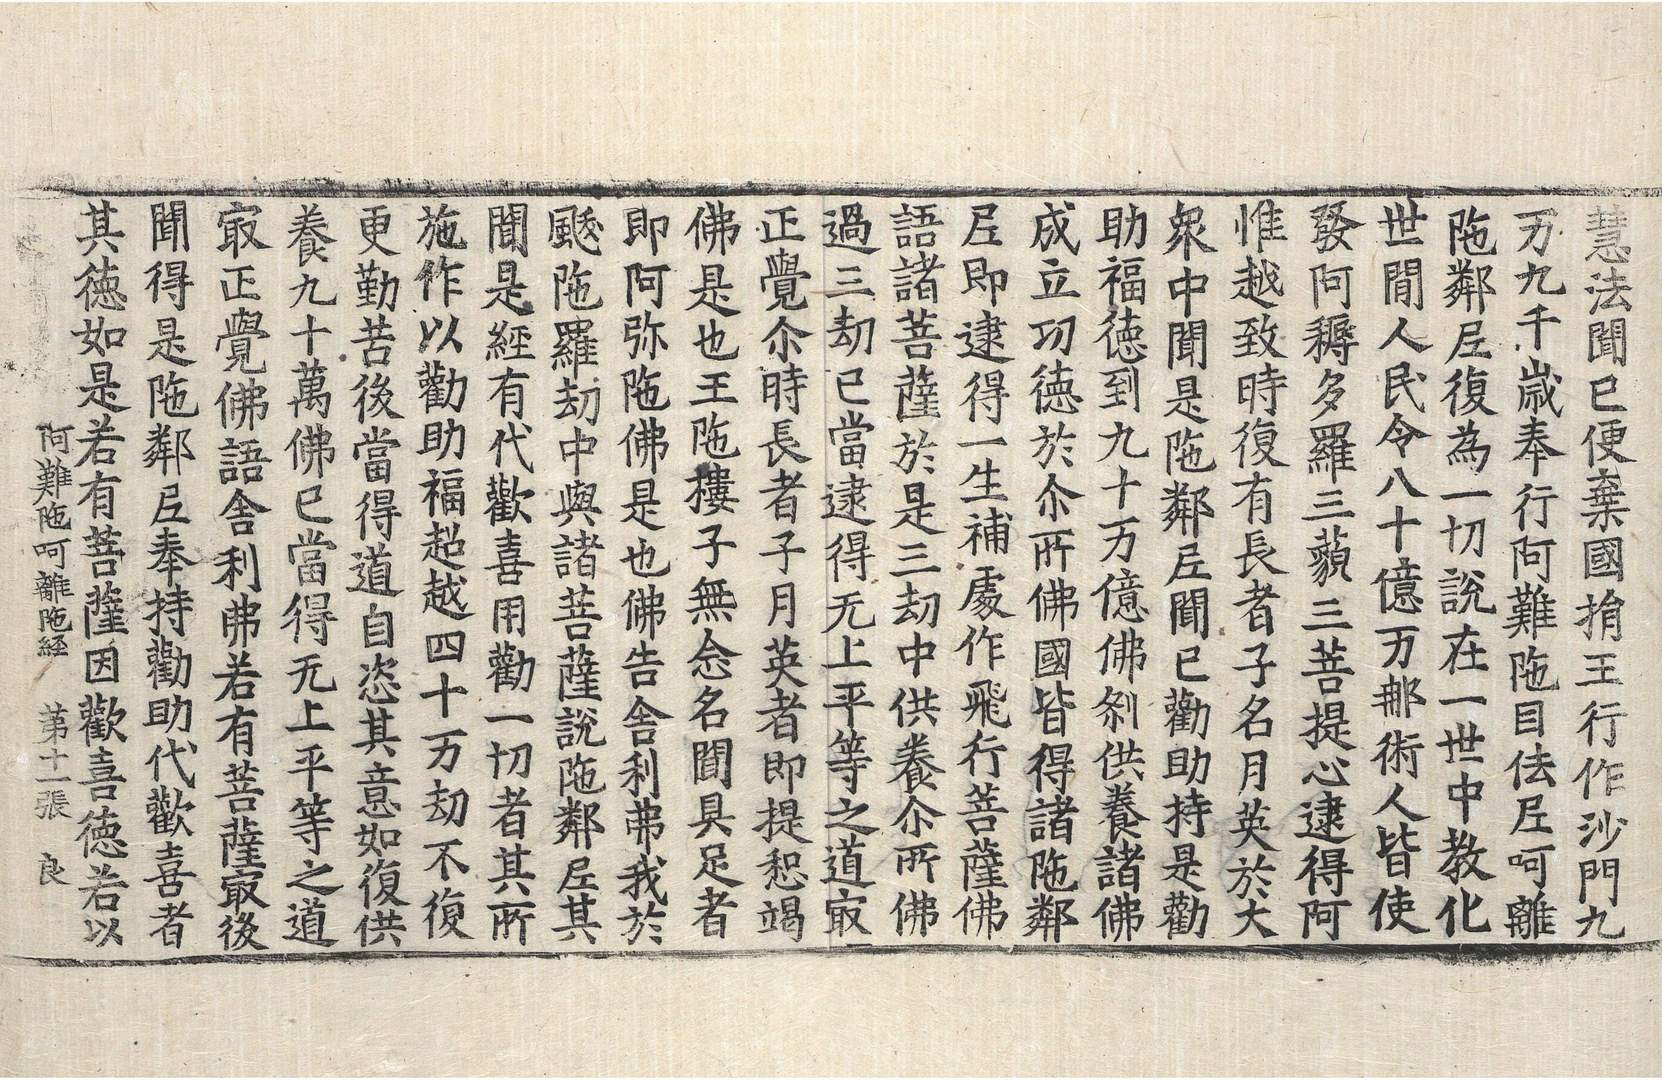 慧法聞已便棄國捐王行作沙門九
万九千歳奉行阿難陁目佉𡰱呵離
陁鄰𡰱復為一切說在一世中教化
世閒人民令八十億万那術人皆使
發阿耨多羅三藐三菩提心逮得阿
惟越致時復有長者子名月英於大
衆中聞是陁鄰𡰱聞已勸助持是勸
助福徳到九十万億佛刹供養諸佛
成立功徳於尒所佛國皆得諸陁鄰
𡰱即逮得一生補處作飛行菩薩佛
語諸菩薩於是三劫中供養尒所佛
過三劫已當逮得无上平等之道㝡
正覺尒時長者子月英者即提惒竭
佛是也王陁樓子無念名聞具足者
即阿弥陁佛是也佛告舍利弗我於
颰陁羅劫中與諸菩薩說陁鄰𡰱其
聞是經有代歡喜用勸一切者其所
施作以勸助福超越四十万劫不復
更勤苦後當得道自恣其意如復供
養九十萬佛已當得无上平等之道
㝡正覺佛語舍利弗若有菩薩㝡後
聞得是陁鄰𡰱奉持勸助代歡喜者
其徳如是若有菩薩因歡喜徳若以
阿難陁呵離陁経 第十一張 良